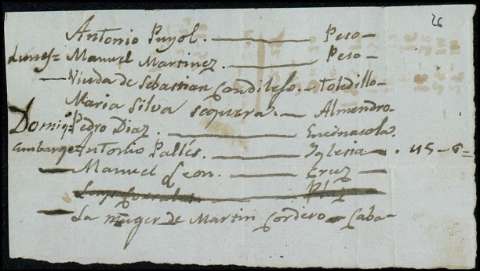 26
Antonio Puyol. — Peso-
Lunes= Manuel Martinez. — Peso-
— Viuda de Sebastian Condileso. - Toledillo-
Maria Silva — Almendro-
Domigo Pedro Diaz. — Encinasola.
embargo= Antonio Pallés. — Yglesia - . 45-6=
— Manuel Leon. — Cruz -
— La muger de Martin Cordero - Caba-